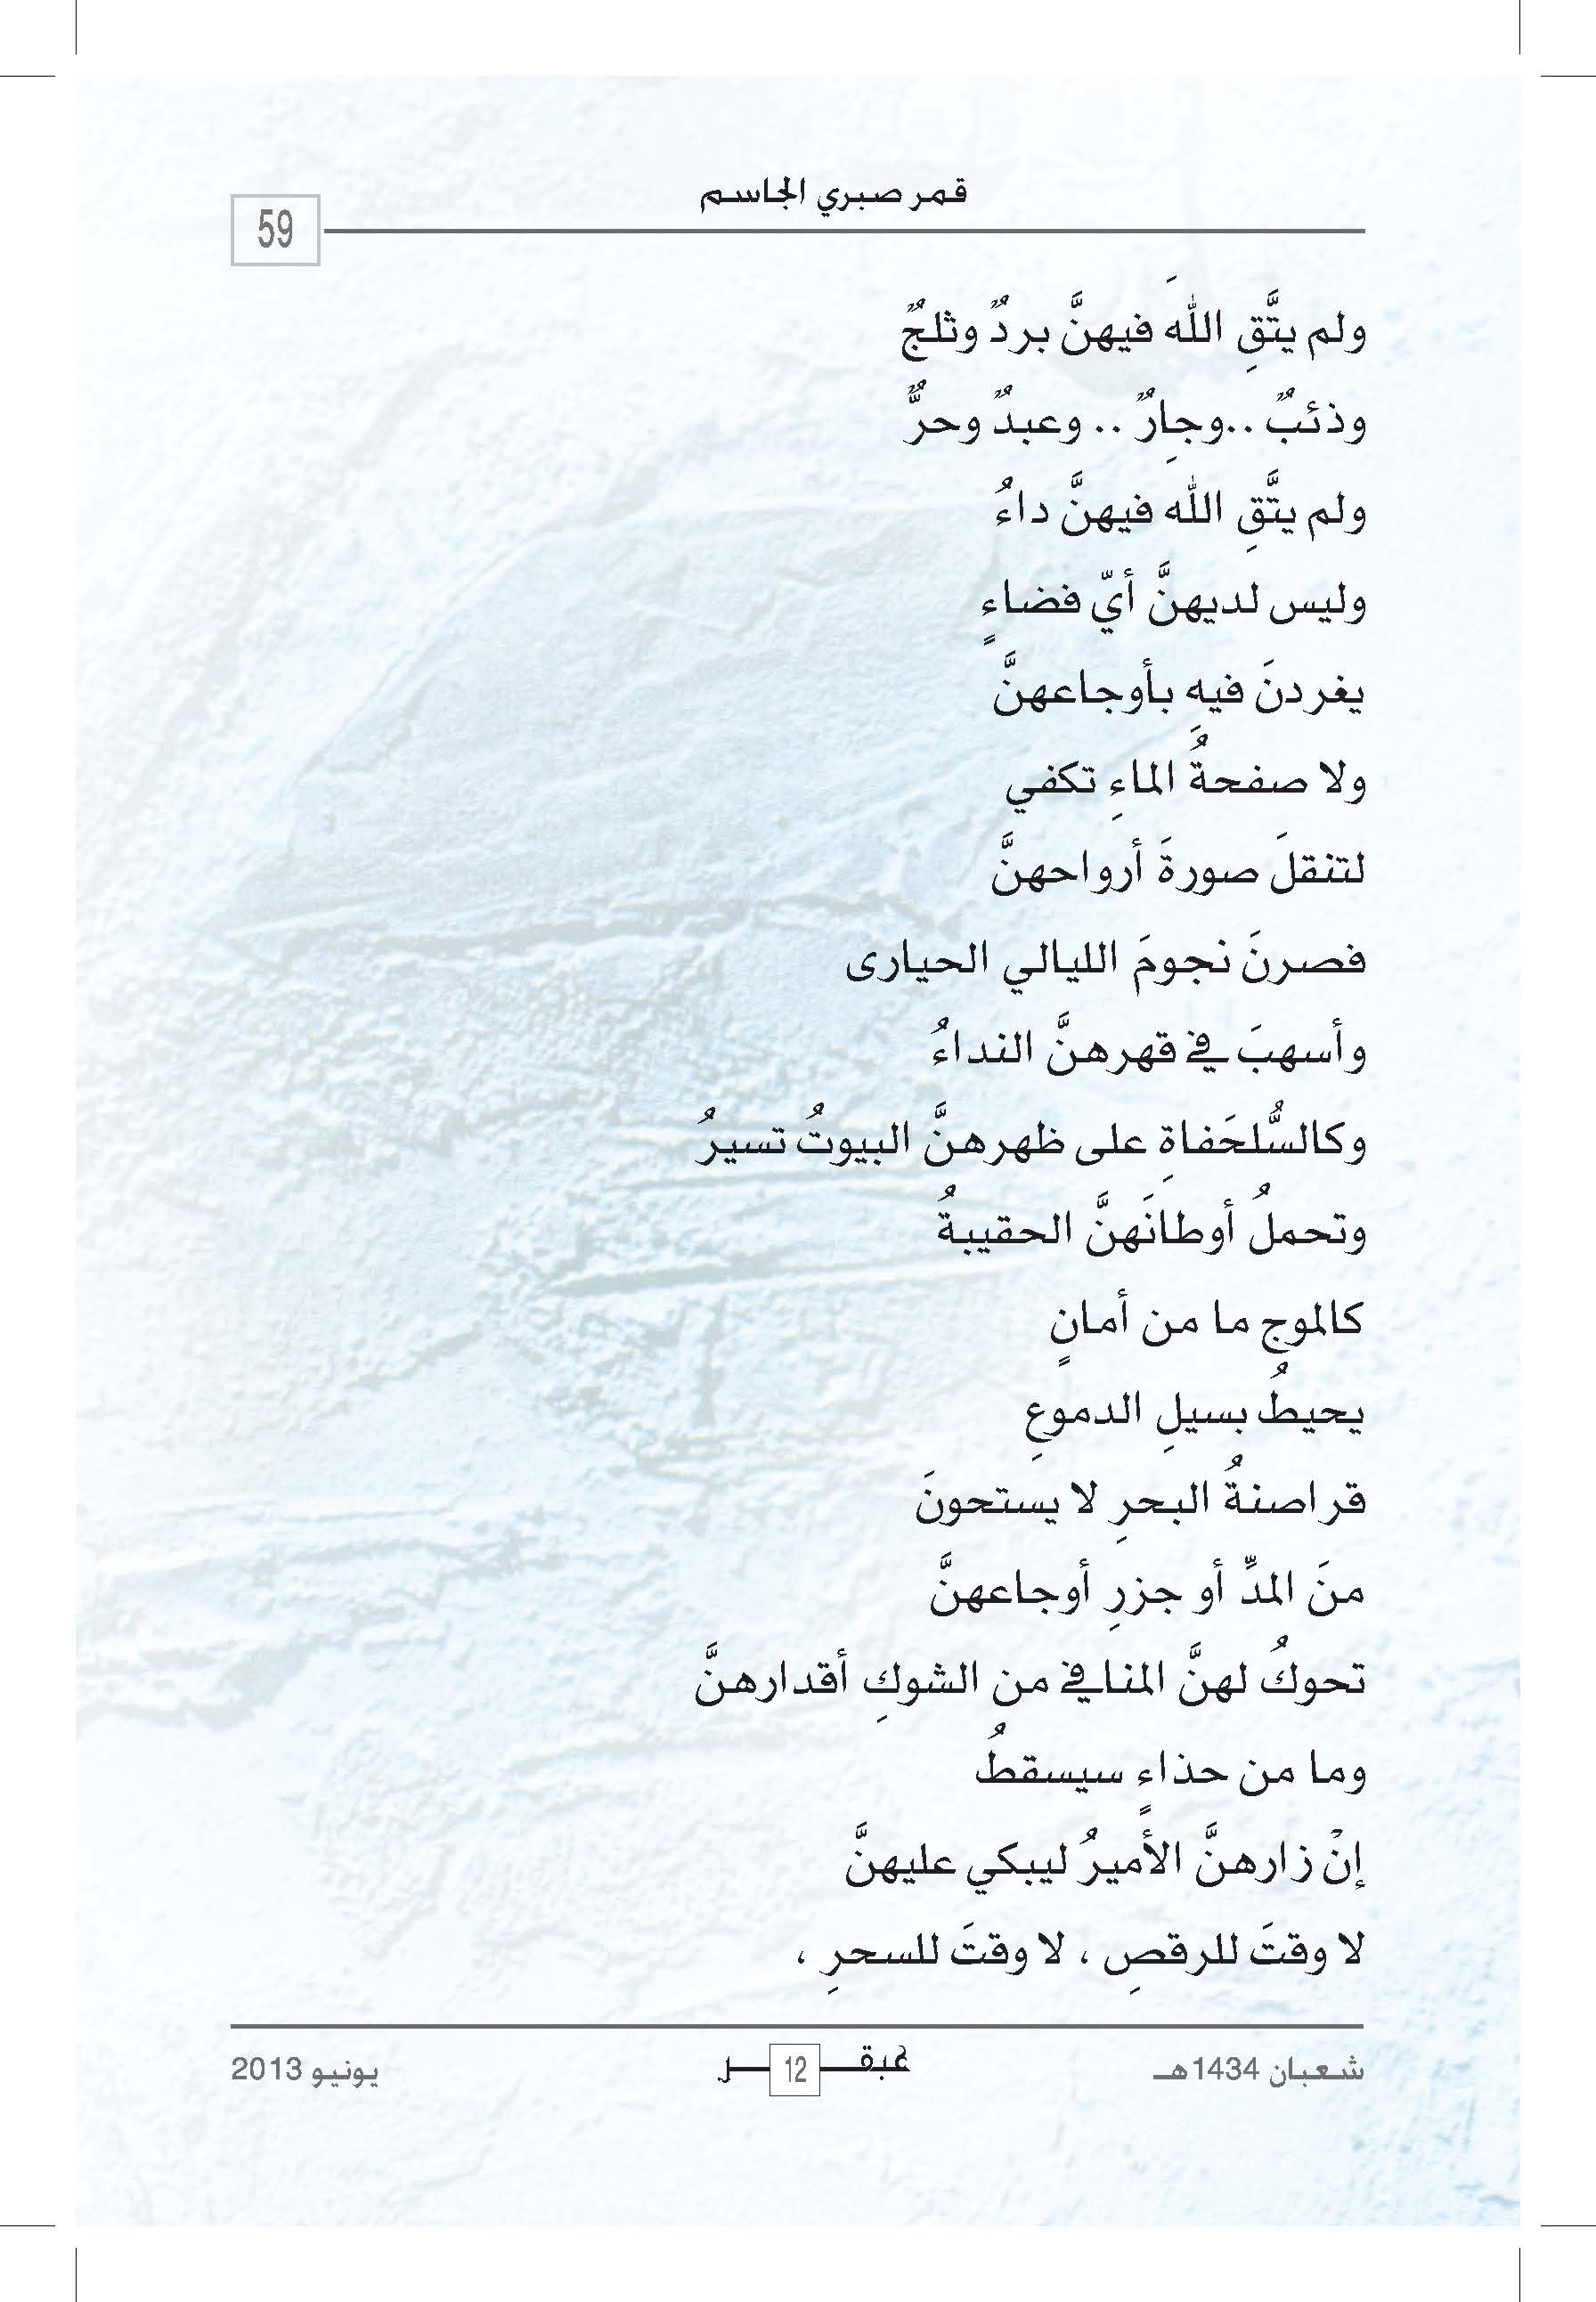 قمر صبري الجاسم
59
ولم يتَّقِ اللهَ فيهنَّ بردٌ وثلجٌ
وذئبٌ ..وجارٌِ .. وعبدٌ وحرٌّ
ولم يتَّقِ الله فيهنَّ داءُ
وليس لديهنَّ أيّ فضاءٍ
يغردنَ فيهِ بأوجاعهنَّ
ولا صفحةُ الماءِ تكفي
لتنقلَ صورةَ أرواحهنَّ
فصرنَ نجومَ الليالي الحيارى
وأسهبَ في قهرهنَّ النداءُ
وكالسُّلحَفاةِ على ظهرهنَّ البيوتُ تسيرُ
وتحملُ أوطانَهنَّ الحقيبةُ
كالموج ما من أمانٍ
يحيطُ بسيلِ الدموعِ
قراصنةُ البحرِ لا يستحونَ
منَ المدِّ أو جزرِ أوجاعهنَّ
تحوكُ لهنَّ المنافي من الشوكِ أقدارهنَّ
وما من حذاءٍ سيسقطُ
إنْ زارهنَّ الأميرُ ليبكي عليهنَّ
لا وقتَ للرقصِ ، لا وقتَ للسحرِ ،
شعبان 1434هـ
عبقـــر
12
يونيو 2013